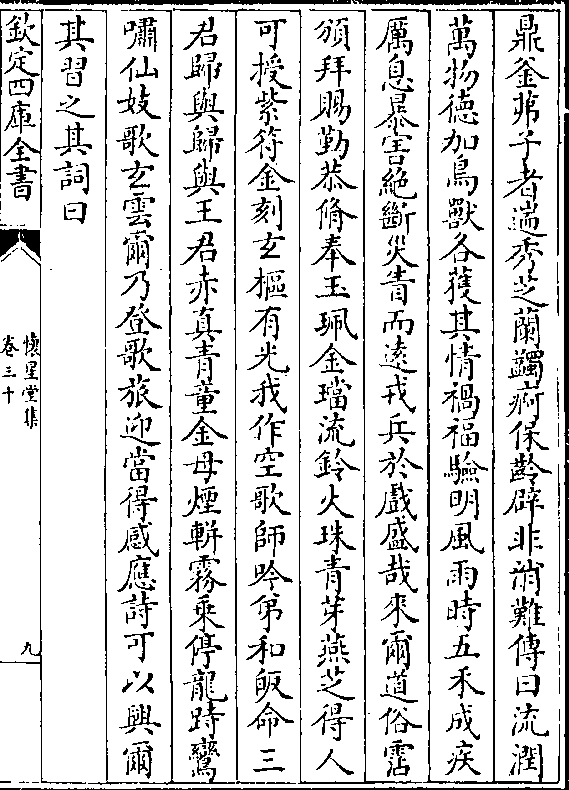 鼎釡茀子者遄秀芝蘭蠲痾保齡辟非消難傳曰流潤
萬物徳加鳥獸各獲其情禍福驗明風雨時五禾成疾
厲息暴害絶斷災眚而逺戎兵於戲盛哉來爾道俗霑
頒拜賜勤恭脩奉玉珮金璫流鈴火珠青芽燕芝得人
可授紫符金刻玄樞有光我作空歌師吟弟和皈命三
君歸與歸與王君赤真青童金母煙軿霧乘停龍跱鸞
嘯仙妓歌玄雲爾乃登歌旅迎當得感應詩可以興爾
其習之其詞曰
欽定四庫全書
懷星堂集
卷三十
九